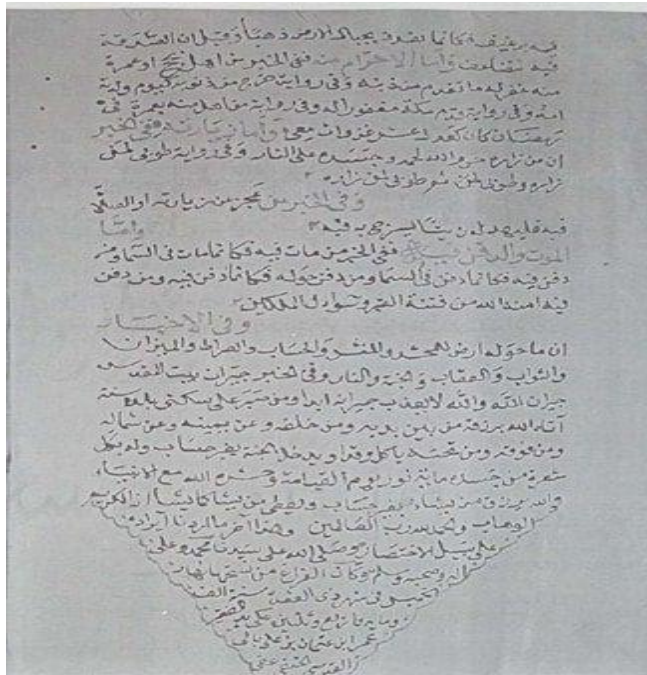 فيه برغيف فكانما تصدق بجبال الارض ذهبا وقيل ان الصدقة
فيه تضاعف واما الاحرام منه ففي الخبر من اهل بحج او عمرة
منه غفر له ما تقدم من ذنبه وفي رواية خرج من ذنوبه كيوم ولدته
امه وفي رواية قدم مكة مغفورا له وفي رواية من اهل منه بعمرة في
رمضان كان كعدل عشر غزوات معي واما زيارته ففي الخبر
ان من زاره حرم الله لحمه وجسده على النار وفي رواية طوبى لمن
زاره وطوبى لمن طوبى لمن زاره
وفي الخبر من عجز عن زيارته او الصلاة
فيه فليهد له زيتا يسرج به فيه
واما
الموت والدفن فيه ففي الخبر من مات فيه فكانما مات في السما ومن
دفن فيه فكانما دفن في السما ومن دفن حوله فكانما دفن فيه ومن دفن
فيه امنه الله من فتنة القبر وسوال الملكين
وفي الاخبار
ان ما حوله ارض المحشر والمنشر والحساب والصراط والميزان
والثواب والعقاب والجنة والنار وفي الخبر جيران بيت المقدس
جيران الله والله لا يعذب جيرانه ابدا ومن صبر على سكنى بلده سنة
اتاه الله برزقه من بين يديه ومن خلفه وعن يمينه وعن شماله
ومن فوقه ومن تحته ياكل رغدا ويدخل الجنة بغير حساب وله بكل
شعرة من جسده ماية نور يوم القيامة وحشره الله مع الانبياء
والله يرزق من يشاء بغير حساب ويعطي من يشا كما يشا انه الكريم
الوهاب والحمد لله رب العالمين وهذا اخر ما اردنا ايراده
على سبيل الاختصار وصلى الله على سيدنا محمد وعلى
اله وصحبه وسلم وكان الفراغ من نسخها نهار
الخميس في شهر ذي القعدة سنة الف
وماية على يد الفقير
عمر ابن عثمان بن علي
القدسي الحنفي عفي